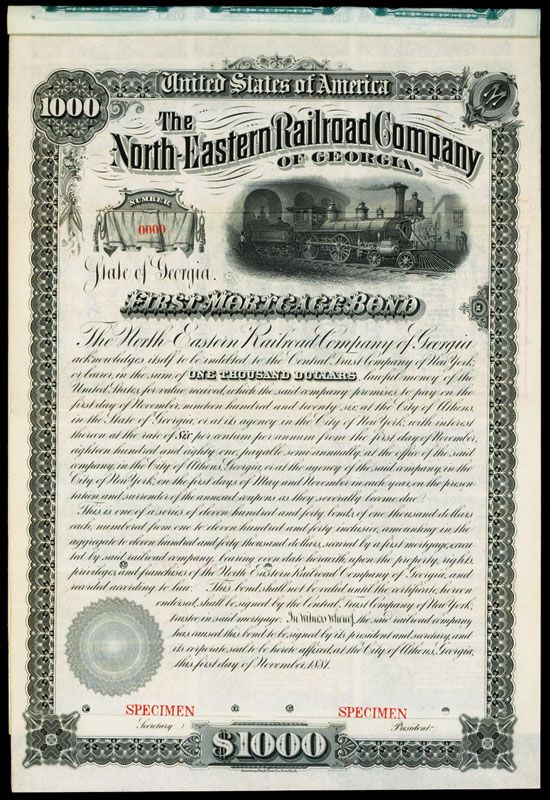 United States of America
1000
The
North-Eastern Railroad Company
OF GEORGIA.
NUMBER
0000
State of Georgia.
FIRST MORTGAGE BOND
The North Eastern Railroad Company of Georgia
acknowledges itself to be indebted to the Central Trust Company of New York,
or bearer, in the sum of ONE THOUSAND DOLLARS, lawful money of the
United States, for value received, which the said company promises to pay on the
first day of November, nineteen hundred and twenty six, at the City of Athens,
in the State of Georgia, or at its agency in the City of New York, with interest
thereon at the rate of Six per centum per annum from the first day of November,
eighteen hundred and eighty one, payable semi annually, at the office of the said
company, in the City of Athens, Georgia, or at the agency of the said company, in the
City of New York, on the first days of May and November in each year, on the presen
tation and surrender of the annexed coupons as they severally become due.
This is one of a series of eleven hundred and forty bonds, of one thousand dollars
each, numbered from one to eleven hundred and forty inclusive, amounting in the
aggregate to eleven hundred and forty thousand dollars, secured by a first mortgage, execu
ted by said railroad company, bearing even date herewith, upon the property, rights,
privileges, and franchises of the North Eastern Railroad Company of Georgia, and
recorded according to law. This bond shall not be valid until the certificate, hereon
endorsed, shall be signed by the Central Trust Company of New York,
trustee in said mortgage. In witness whereof, the said railroad company
has caused this bond to be signed by its president and secretary, and
its corporate seal to be hereto affixed, at the City of Athens, Georgia,
this first day of November, 1881.
SPECIMEN
SPECIMEN
Secretary
President
$1000
American Bank Note Co. New York